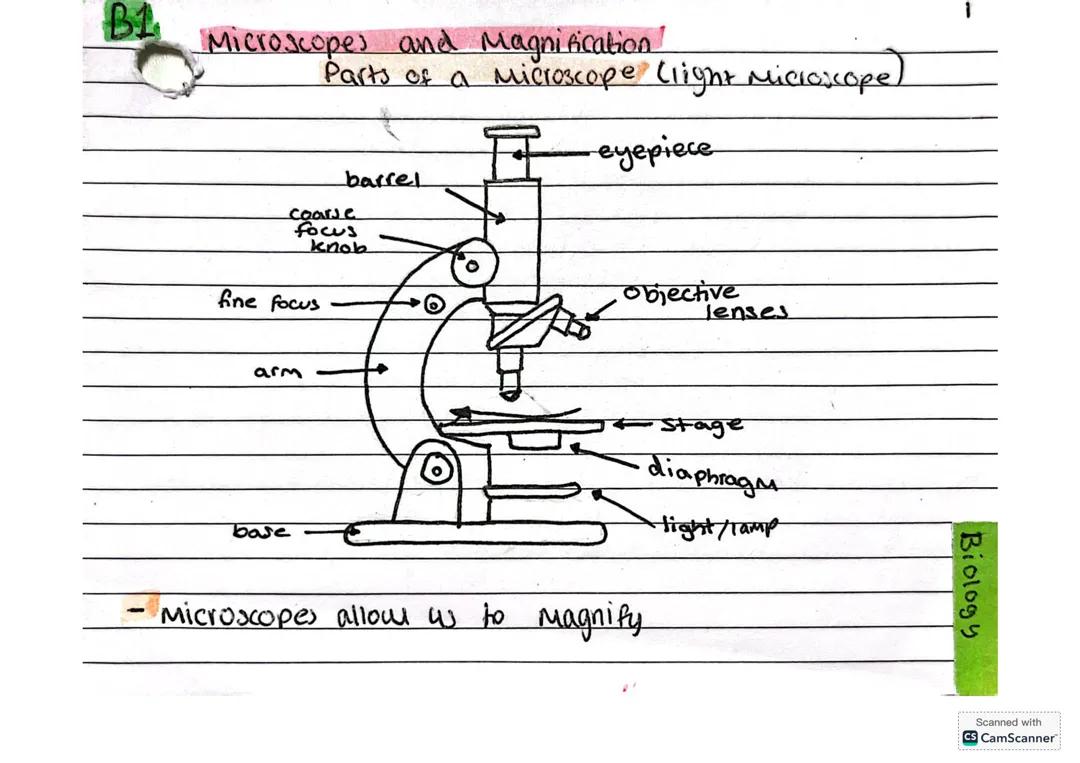 B1
1
Microscopes and Magnification
Parts of a Microscope (light Microscope)
eyepiece
barrel
coarse
focus
knob
fine focus
objective
lenses
arm
stage
diaphragm
light/lamp
base
Biology
- Microscopes allow us to magnify
Scanned with
CS CamScanner